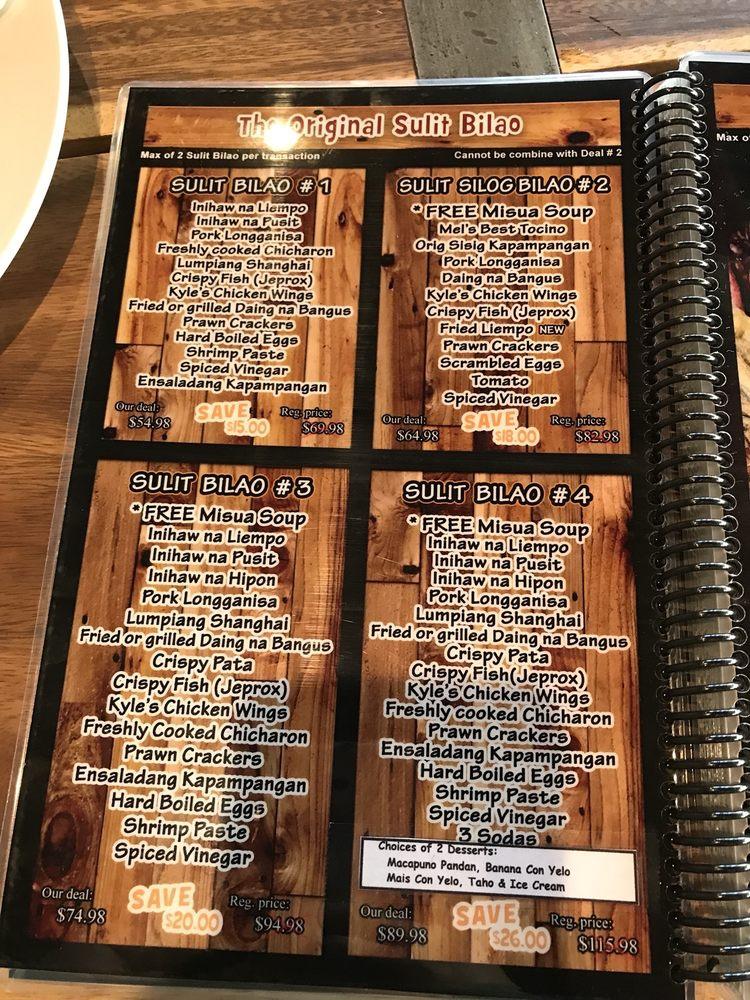 The Original Sulit Bilao
Max of 2 Sulit Bilao per transaction
Cannot be combine with Deal # 2
SULIT BILAO # 1
Inihaw na Liempo
Inihaw na Pusit
Pork Longganisa
Freshly cooked Chicharon
Lumpiang Shanghai
Crispy Fish (Jeprox)
Kyle's Chicken Wings
Fried or grilled Daing na Bangus
Prawn Crackers
Hard Boiled Eggs
Shrimp Paste
Spiced Vinegar
Ensaladang Kapampangan
Our deal:
$54.98
SAVE
$15.00
Reg. price:
$69.98
SULIT SILOG BILAO # 2
* FREE Misua Soup
Mel's Best Tocino
Orig Sisig Kapampangan
Pork Longganisa
Daing na Bangus
Kyle's Chicken Wings
Crispy Fish (Jeprox)
Fried Liempo NEW
Prawn Crackers
Scrambled Eggs
Tomato
Spiced Vinegar
Our deal:
$64.98
SAVE
$18.00
Reg. price:
$82.98
SULIT BILAO # 3
* FREE Misua Soup
Inihaw na Liempo
Inihaw na Pusit
Inihaw na Hipon
Pork Longganisa
Lumpiang Shanghai
Fried or grilled Daing na Bangus
Crispy Pata
Crispy Fish (Jeprox)
Kyle's Chicken Wings
Freshly Cooked Chicharon
Prawn Crackers
Ensaladang Kapampangan
Hard Boiled Eggs
Shrimp Paste
Spiced Vinegar
Our deal:
$74.98
SAVE
$20.00
Reg. price:
$94.98
SULIT BILAO # 4
* FREE Misua Soup
Inihaw na Liempo
Inihaw na Pusit
Inihaw na Hipon
Pork Longganisa
Lumpiang Shanghai
Fried or grilled Daing na Bangus
Crispy Pata
Crispy Fish(Jeprox)
Kyle's Chicken Wings
Freshly cooked Chicharon
Prawn Crackers
Ensaladang Kapampangan
Hard Boiled Eggs
Shrimp Paste
Spiced Vinegar
3 Sodas
Choices of 2 Desserts:
Macapuno Pandan, Banana Con Yelo
Mais Con Yelo, Taho & Ice Cream
Our deal:
$89.98
SAVE
$26.00
Reg. price:
$115.98
Max o